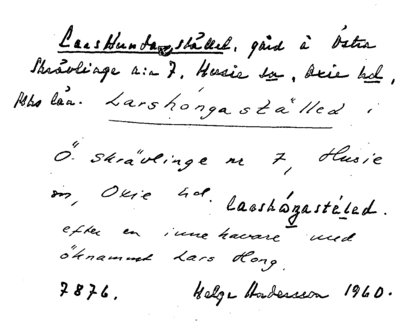 Larshundastället, gård å Östra
Skrävlinge n:o 7, Husie sn, Oxie hd,
Mhs län. Larshöngaställed i
Ö. Skrävlinge nr 7, Husie
sn, Oxie hd. larshöŋastéled.
efter en innehavare med
öknamnet Lars Hong.
7876. Helge Andersson 1960.